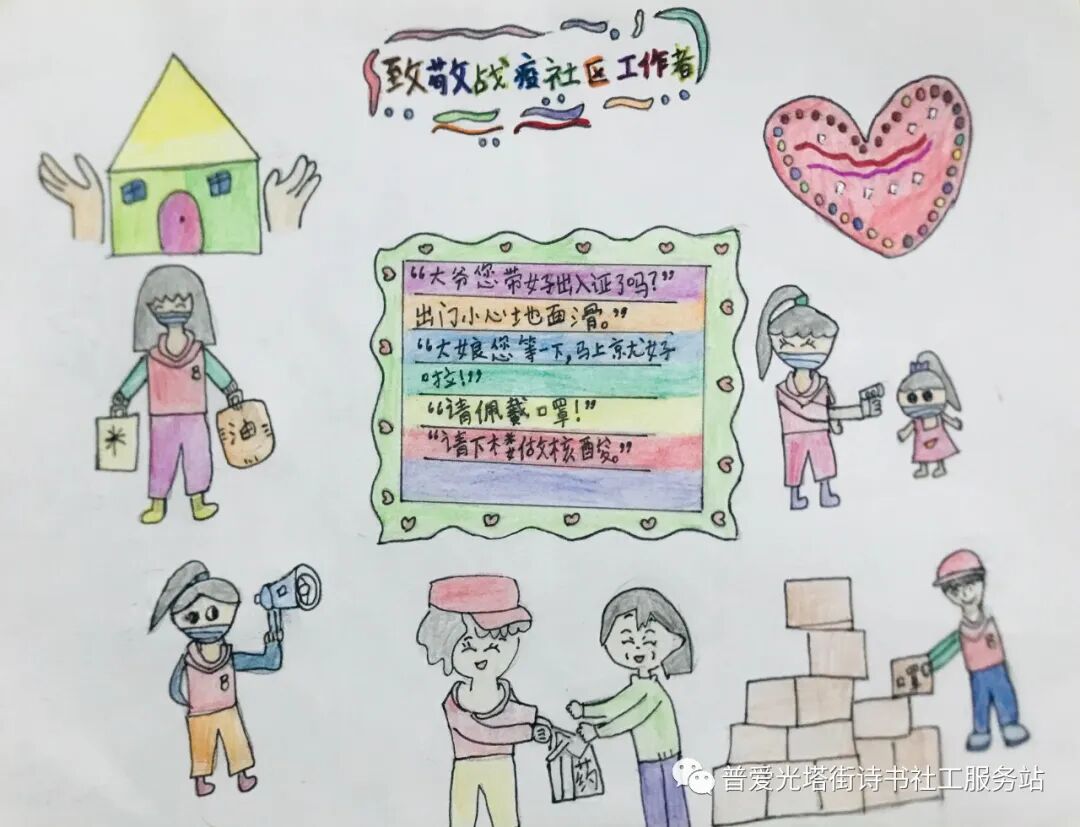 致敬战疫社区工作者
“大爷您带好出入证了吗?”
出门小心地面滑。”
“大娘您等一下,马上就好
啦!”
“请佩戴口罩!”
“请下楼做核酸。”
米
油
药
口罩
普爱光塔街诗书社工服务站